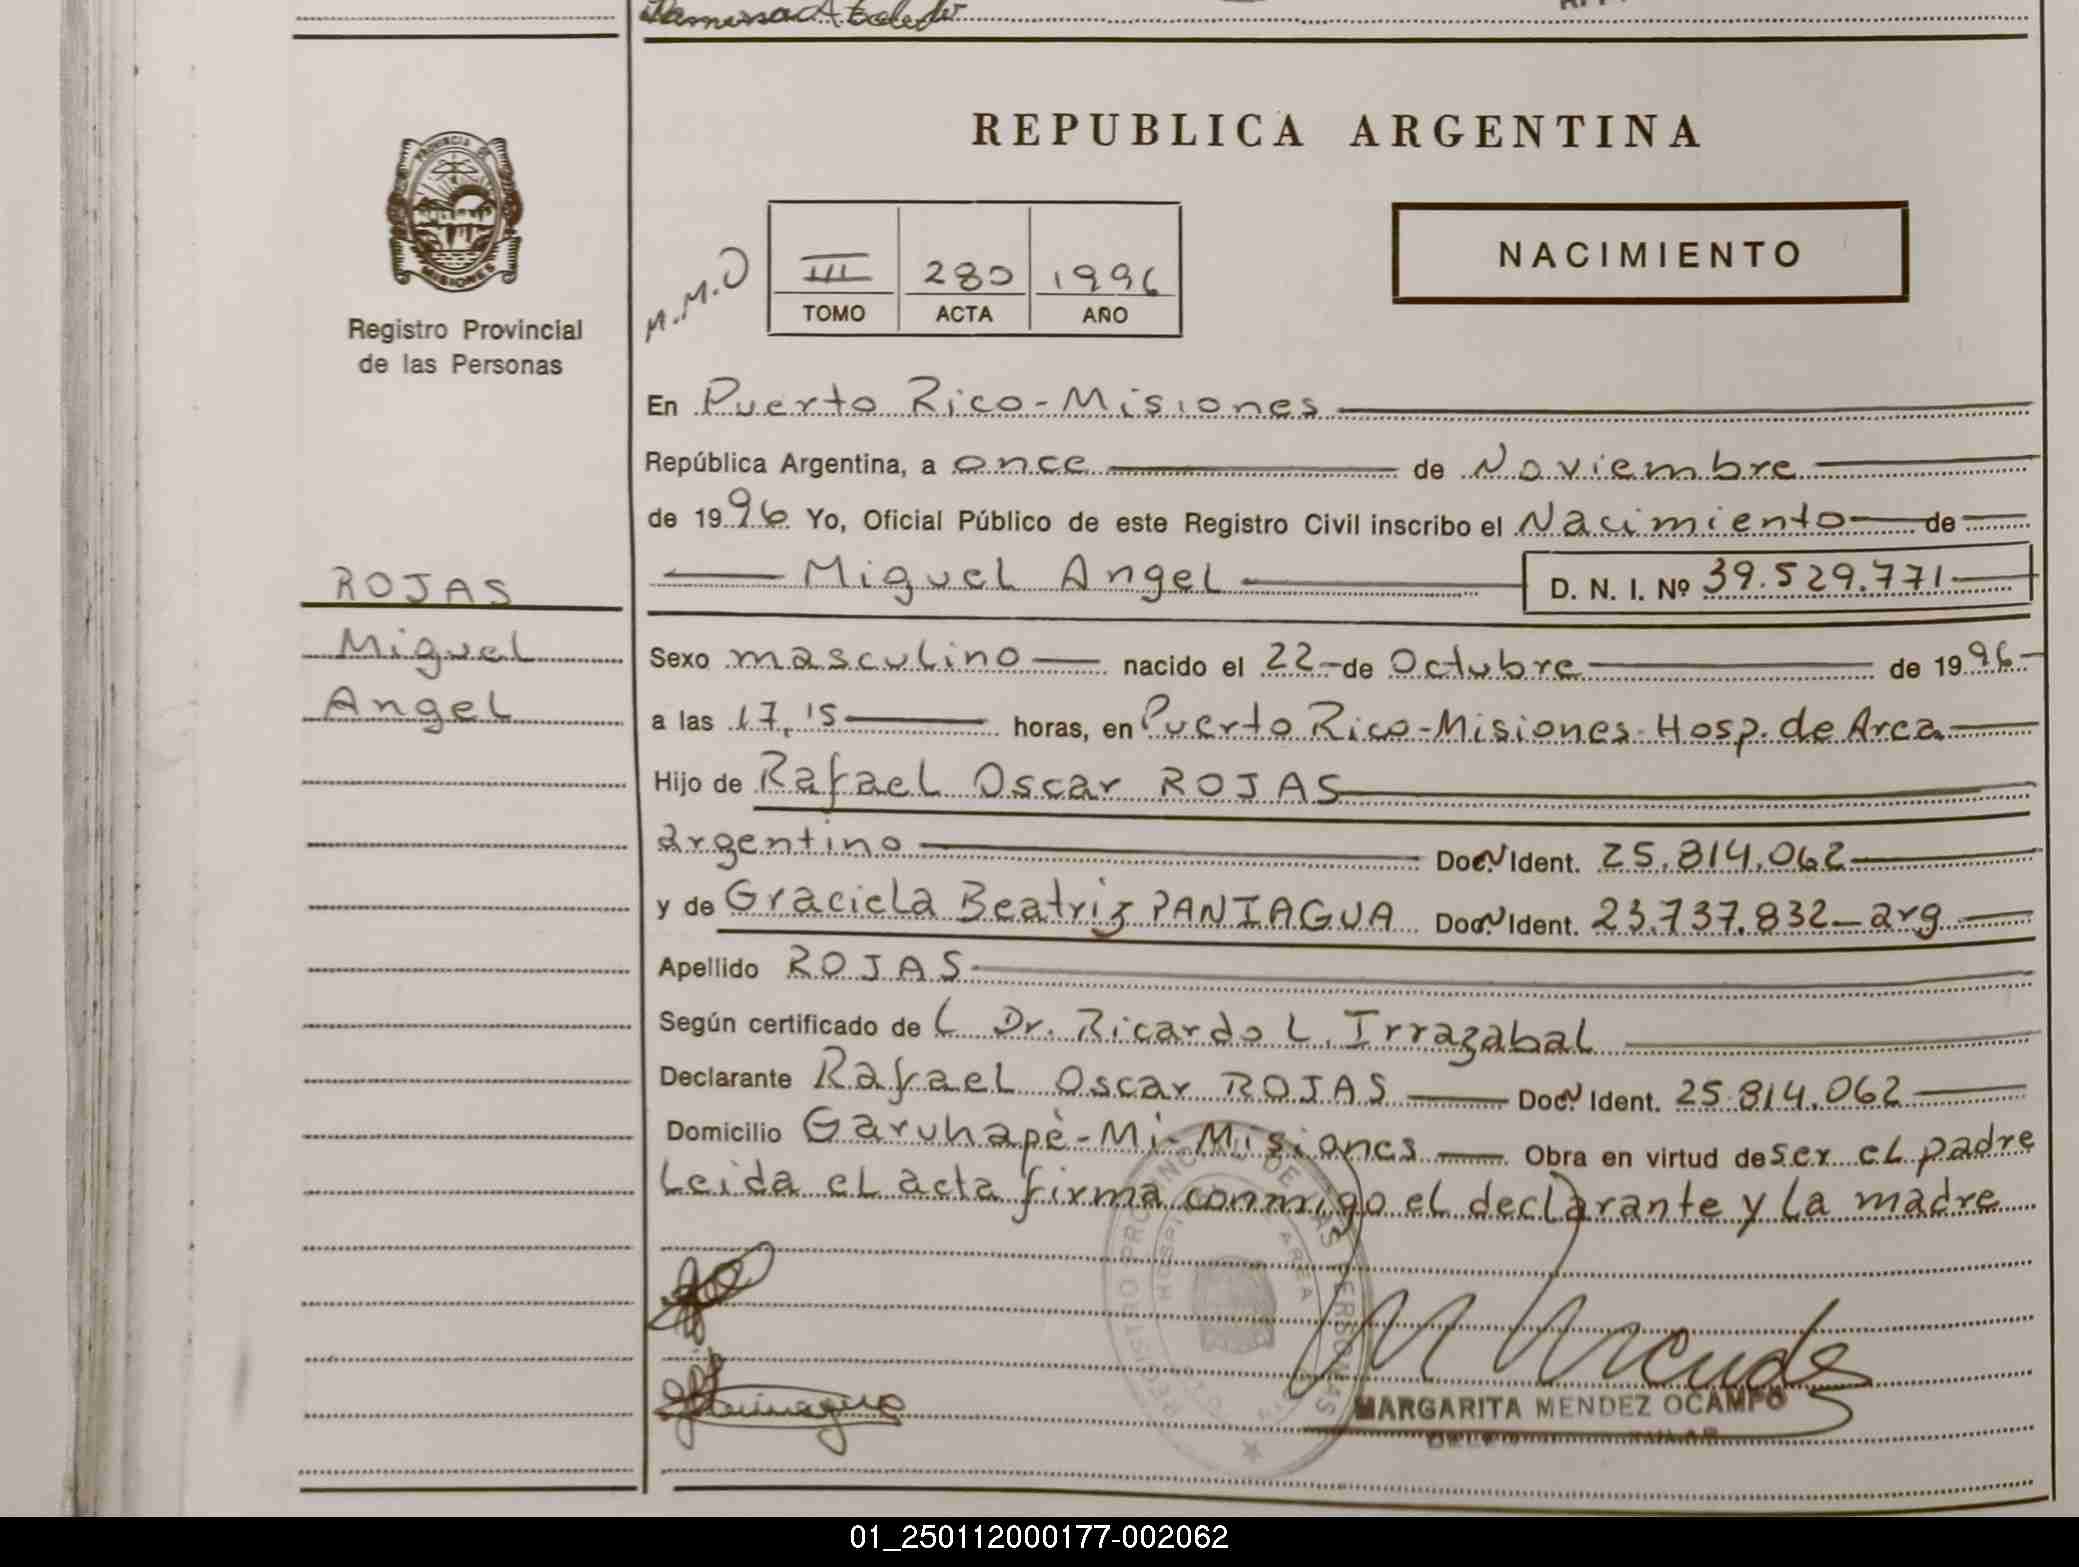 REPUBLICA ARGENTINA
PROVINCIA DE
MISIONES
Registro Provincial
de las Personas
NACIMIENTO
M.M.O
III 280 1996
TOMO ACTA AÑO
En Puerto Rico-Misiones
República Argentina, a once de Noviembre
de 1996 Yo, Oficial Público de este Registro Civil inscribo el Nacimiento de
Miguel Angel D. N. I. Nº 39.529.771
ROJAS
Miguel
Angel
Sexo masculino nacido el 22 de Octubre de 1996
a las 17,15 horas, en Puerto Rico-Misiones-Hosp. de Area
Hijo de Rafael Oscar ROJAS
argentino Doc. N Ident. 25.814.062
y de Graciela Beatriz PANIAGUA Doc. N Ident. 23.737.832-arg.
Apellido ROJAS
Según certificado de L Dr. Ricardo L. Irrazabal
Declarante Rafael Oscar ROJAS Doc. N Ident. 25.814.062
Domicilio Garuhapè-Mi-Misiones Obra en virtud de ser el padre
Leida el acta firma conmigo el declarante y la madre
REGISTRO PROVINCIAL DE LAS PERSONAS
HOSPITAL AREA
M Mendez
MARGARITA MENDEZ OCAMPO
01_250112000177-002062